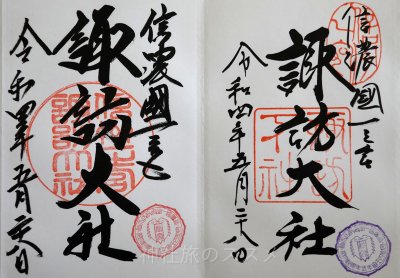 信濃國一之宮
諏訪大社
令和四年五月二十八日
信濃國一之宮
諏訪大社
令和四年五月二十八日
神社旅のススメ